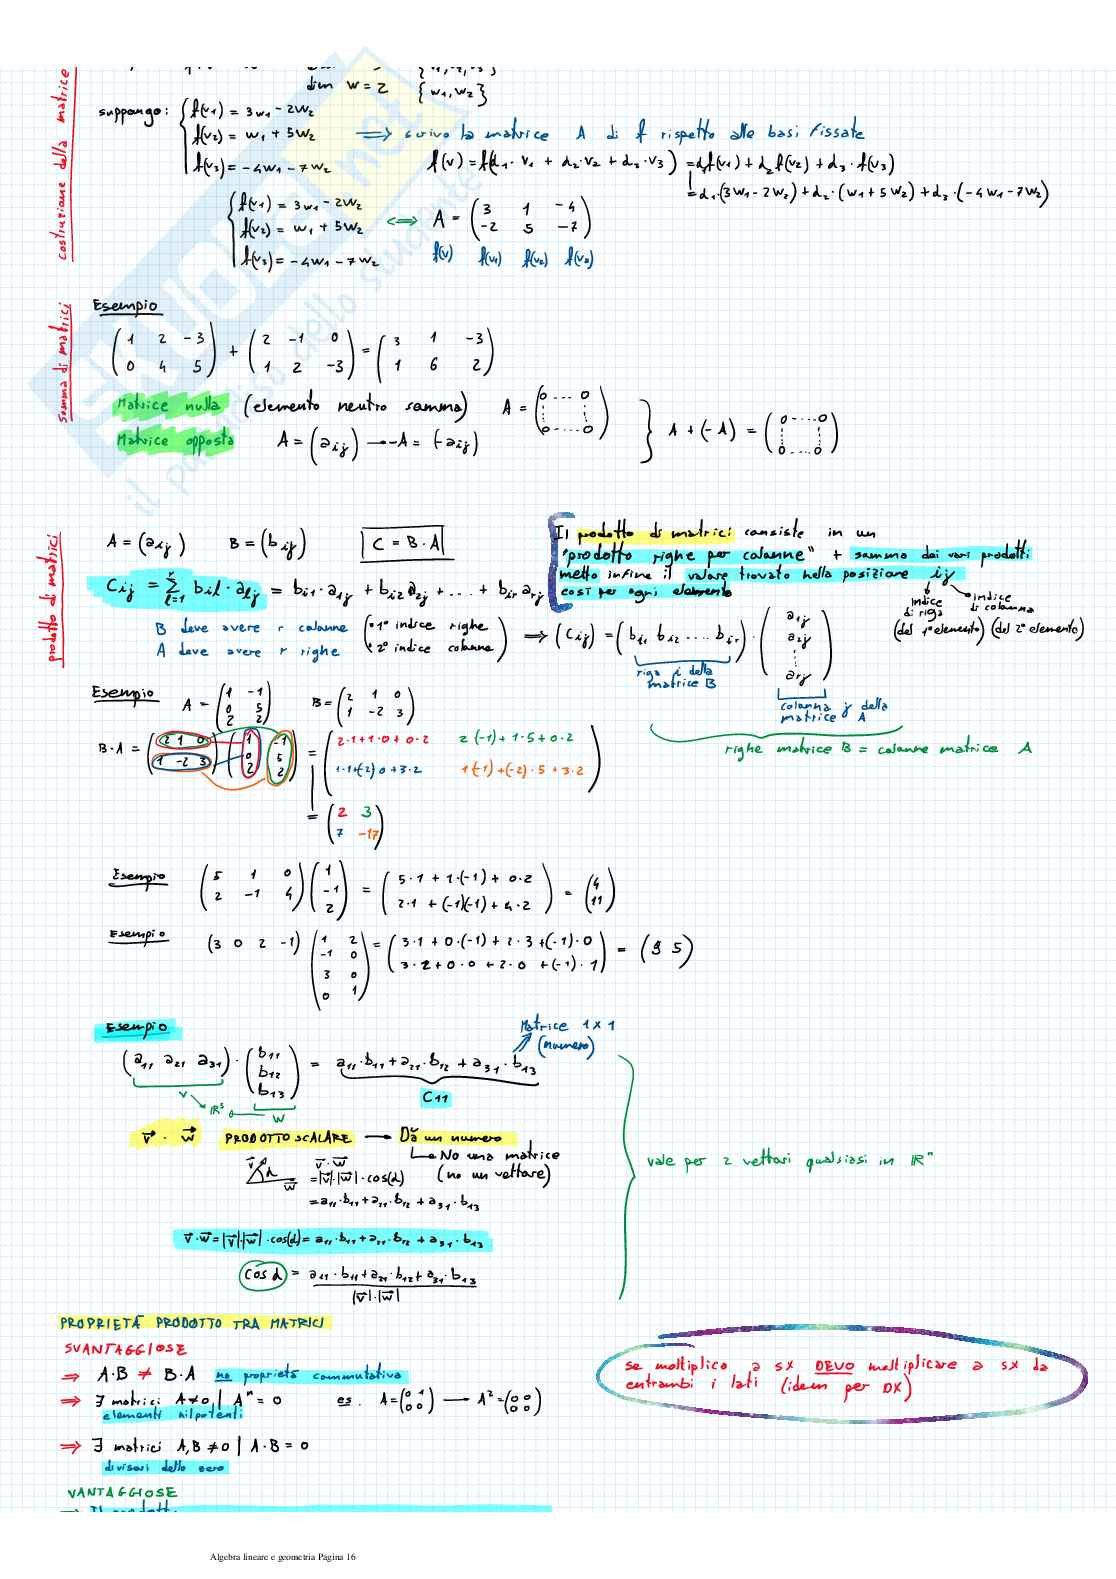 costruzione della matrice
dim W = 2 {w1, w2}
suppongo: { f(v1) = 3w1 - 2w2
f(v2) = w1 + 5w2 ⟹ scrivo la matrice A di f rispetto alle basi fissate
f(v3) = -4w1 - 7w2 f(v) = f(d1·v1 + d2·v2 + d3·v3) = d1f(v1) + d2f(v2) + d3·f(v3)
= d1·(3w1 - 2w2) + d2·(w1 + 5w2) + d3·(-4w1 - 7w2)
{ f(v1) = 3w1 - 2w2
f(v2) = w1 + 5w2 ⟺ A = (3 1 -4 / -2 5 -7)
f(v3) = -4w1 - 7w2 f(v) f(v1) f(v2) f(v3)
somma di matrici
Esempio
(1 2 -3 / 0 4 5) + (2 -1 0 / 1 2 -3) = (3 1 -3 / 1 6 2)
Matrice nulla (elemento neutro somma) A = (0 ... 0 / 0 ... 0)
Matrice opposta A = (aij) → -A = (-aij) } A + (-A) = (0 ... 0 / 0 ... 0)
prodotto di matrici
A = (aij) B = (bij) C = B·A
Il prodotto di matrici consiste in un
"prodotto righe per colonne" + sommo dai vari prodotti
metto infine il valore trovato nella posizione ij
così per ogni elemento
indice di riga (del 1° elemento) indice di colonna (del 2° elemento)
Cij = Σ(l=1, r) bil·alj = bi1·a1j + bi2 a2j + ... + bir arj
B deve avere r colonne (1° indice righe
A deve avere r righe 2° indice colonne)
⟹ (Cij) = (bi1 bi2 .... bir) · (a1j / a2j / ... / arj)
riga i della matrice B
colonna j della matrice A
righe matrice B = colonne matrice A
Esempio A = (1 -1 / 0 5 / 2 2) B = (2 1 0 / 1 -2 3)
B·A = (2 1 0 / 1 -2 3) (1 -1 / 0 5 / 2 2) = (2·1+1·0+0·2 2(-1)+1·5+0·2 / 1·1+(-2)0+3·2 1(-1)+(-2)·5+3·2)
= (2 3 / 7 -17)
Esempio (5 1 0 / 2 -1 4) (1 / -1 / 2) = (5·1 + 1·(-1) + 0·2 / 2·1 + (-1)(-1) + 4·2) = (4 / 11)
Esempio (3 0 2 -1) (1 2 / -1 0 / 3 0 / 0 1) = (3·1 + 0·(-1) + 2·3 + (-1)·0 / 3·2 + 0·0 + 2·0 + (-1)·1) = (9 5)
Esempio
Matrice 1×1 (numero)
(a11 a21 a31) · (b11 / b12 / b13) = a11·b11 + a21·b12 + a31·b13
C11
v ℝ³ w
v · w PRODOTTO SCALARE → Dà un numero
No una matrice
(no un vettore)
v α w
v·w
= |v|·|w|·cos(α)
= a11·b11 + a21·b12 + a31·b13
vale per 2 vettori qualsiasi in ℝⁿ
v·w = |v|·|w|·cos(α) = a11·b11 + a21·b12 + a31·b13
cos α = (a11·b11 + a21·b12 + a31·b13) / (|v|·|w|)
PROPRIETÀ PRODOTTO TRA MATRICI
SVANTAGGIOSE
⟹ A·B ≠ B·A no proprietà commutativa
⟹ ∃ matrici A≠0 | Aⁿ = 0 es. A = (0 1 / 0 0) → A² = (0 0 / 0 0)
elementi nilpotenti
⟹ ∃ matrici A,B ≠ 0 | A·B = 0
divisori dello zero
se moltiplico a sx DEVO moltiplicare a sx da
entrambi i lati (idem per DX)
VANTAGGIOSE
Algebra lineare e geometria Pagina 16